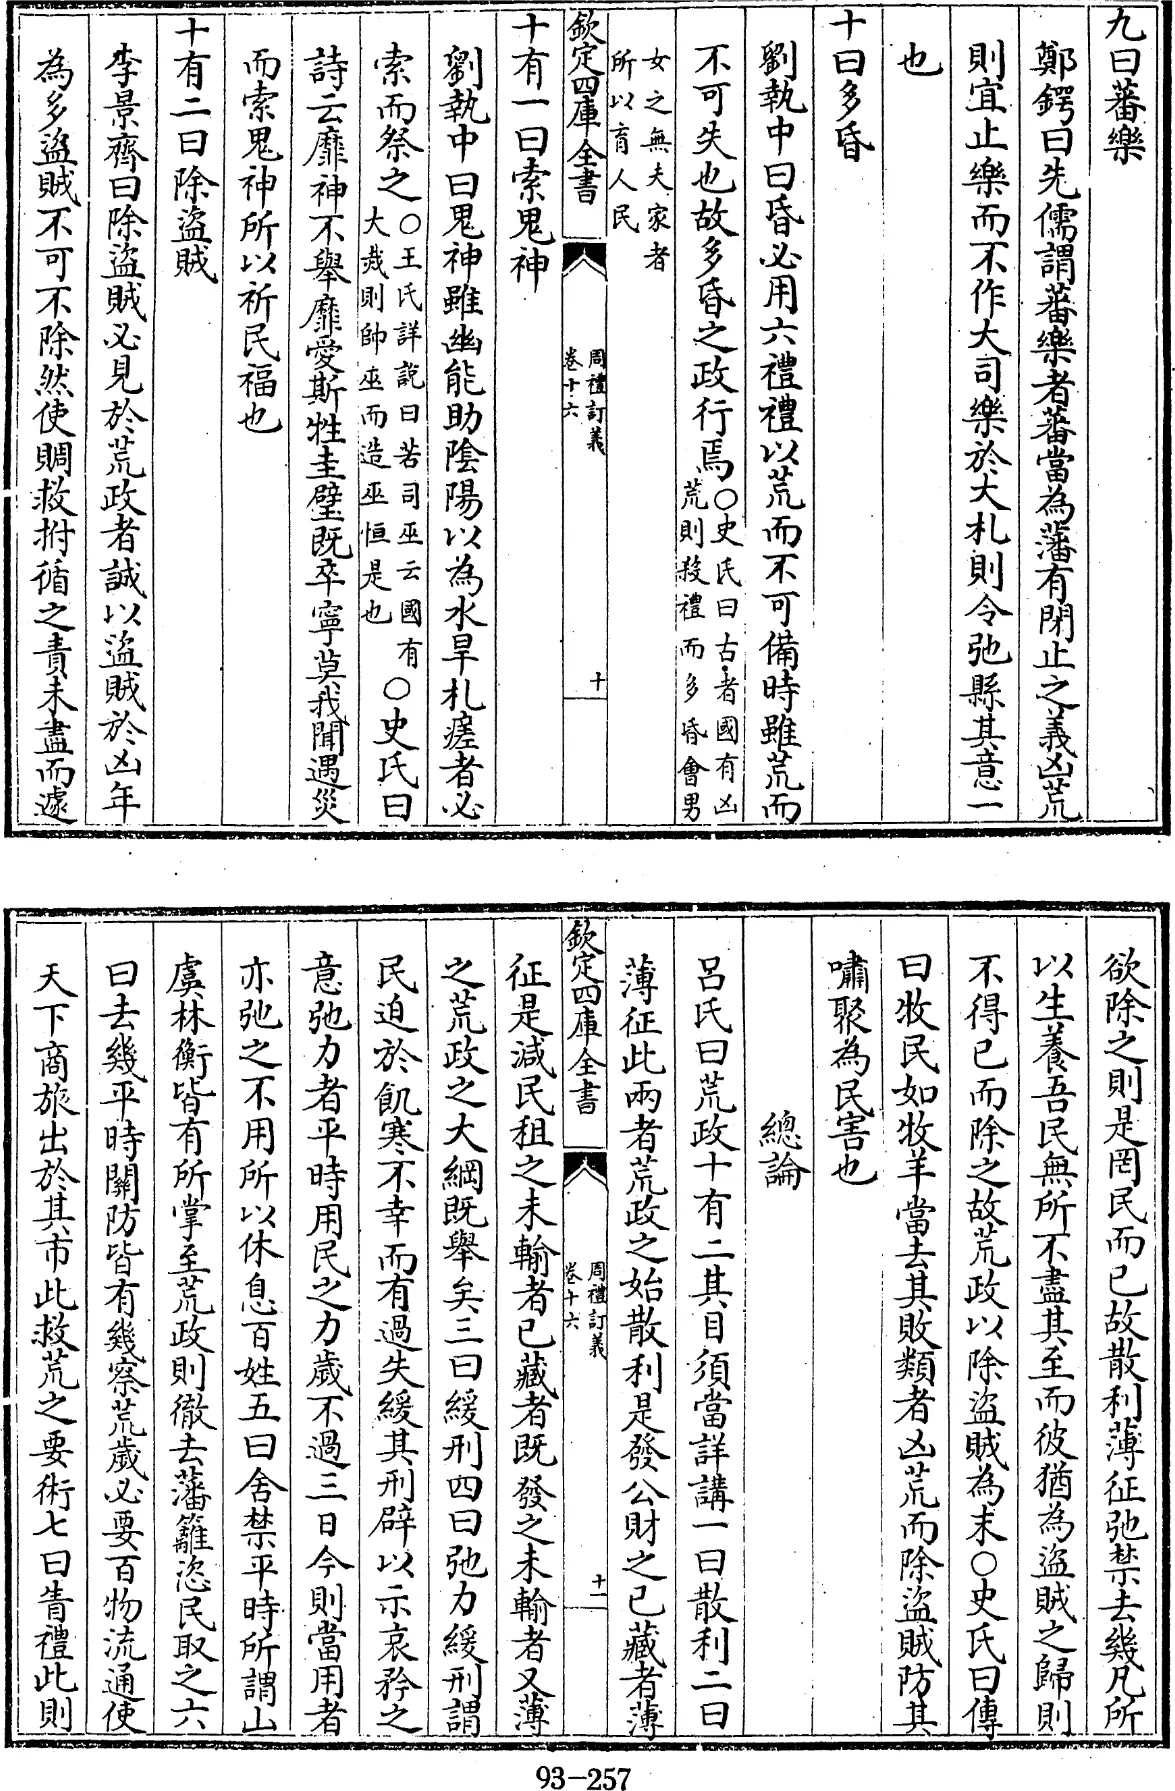 九曰蕃樂
鄭鍔曰先儒謂蕃樂者蕃當為藩有閉止之義凶荒
則宜止樂而不作大司樂於大札則令弛縣其意一
也
十曰多昏
劉執中曰昏必用六禮禮以荒而不可備時雖荒而
不可失也故多昏之政行焉○史氏曰古者國有凶
荒則殺禮而多昏會男
女之無夫家者
所以育人民
欽定四庫全書
周禮訂義
卷十六
十
十有一曰索鬼神
劉執中曰鬼神雖幽能助陰陽以為水旱札瘥者必
索而祭之○王氏詳說曰若司巫云國有
大烖則帥巫而造巫恒是也
○史氏曰
詩云靡神不舉靡愛斯牲圭璧既卒寧莫我聞遇災
而索鬼神所以祈民福也
十有二曰除盜賊
李景齊曰除盜賊必見於荒政者誠以盜賊於凶年
為多盜賊不可不除然使賙救拊循之責未盡而遽
欲除之則是罔民而已故散利薄征弛禁去幾凡所
以生養吾民無所不盡其至而彼猶為盜賊之歸則
不得已而除之故荒政以除盜賊為末○史氏曰傳
曰牧民如牧羊當去其敗類者凶荒而除盜賊防其
嘯聚為民害也
總論
呂氏曰荒政十有二其目須當詳講一曰散利二曰
薄征此兩者荒政之始散利是發公財之已藏者薄
欽定四庫全書
周禮訂義
卷十六
十一
征是減民租之未輸者已藏者既發之未輸者又薄
之荒政之大綱既舉矣三曰緩刑四曰弛力緩刑謂
民迫於飢寒不幸而有過失緩其刑辟以示哀矜之
意弛力者平時用民之力歲不過三日今則當用者
亦弛之不用所以休息百姓五曰舍禁平時所謂山
虞林衡皆有所掌至荒政則徹去藩籬恣民取之六
曰去幾平時關防皆有幾察荒歲必要百物流通使
天下商旅出於其市此救荒之要術七曰眚禮此則
93-257